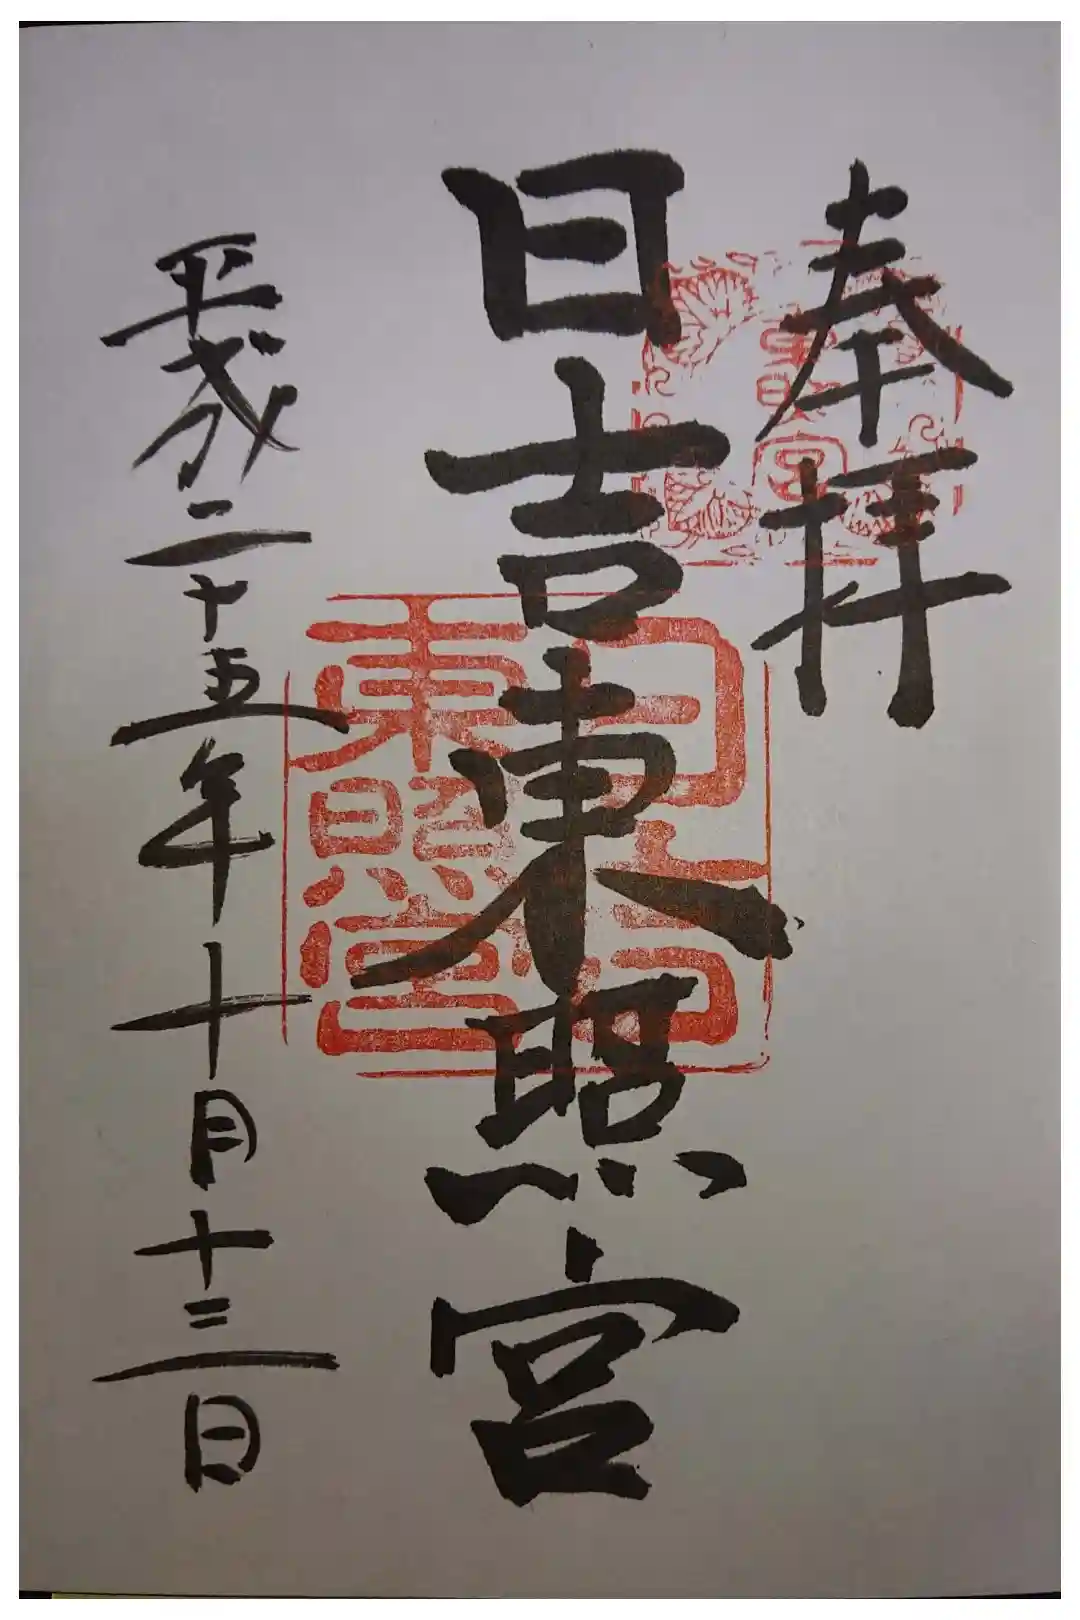 奉拝
日吉東照宮
日吉東照宮
平成二十五年十月十三日